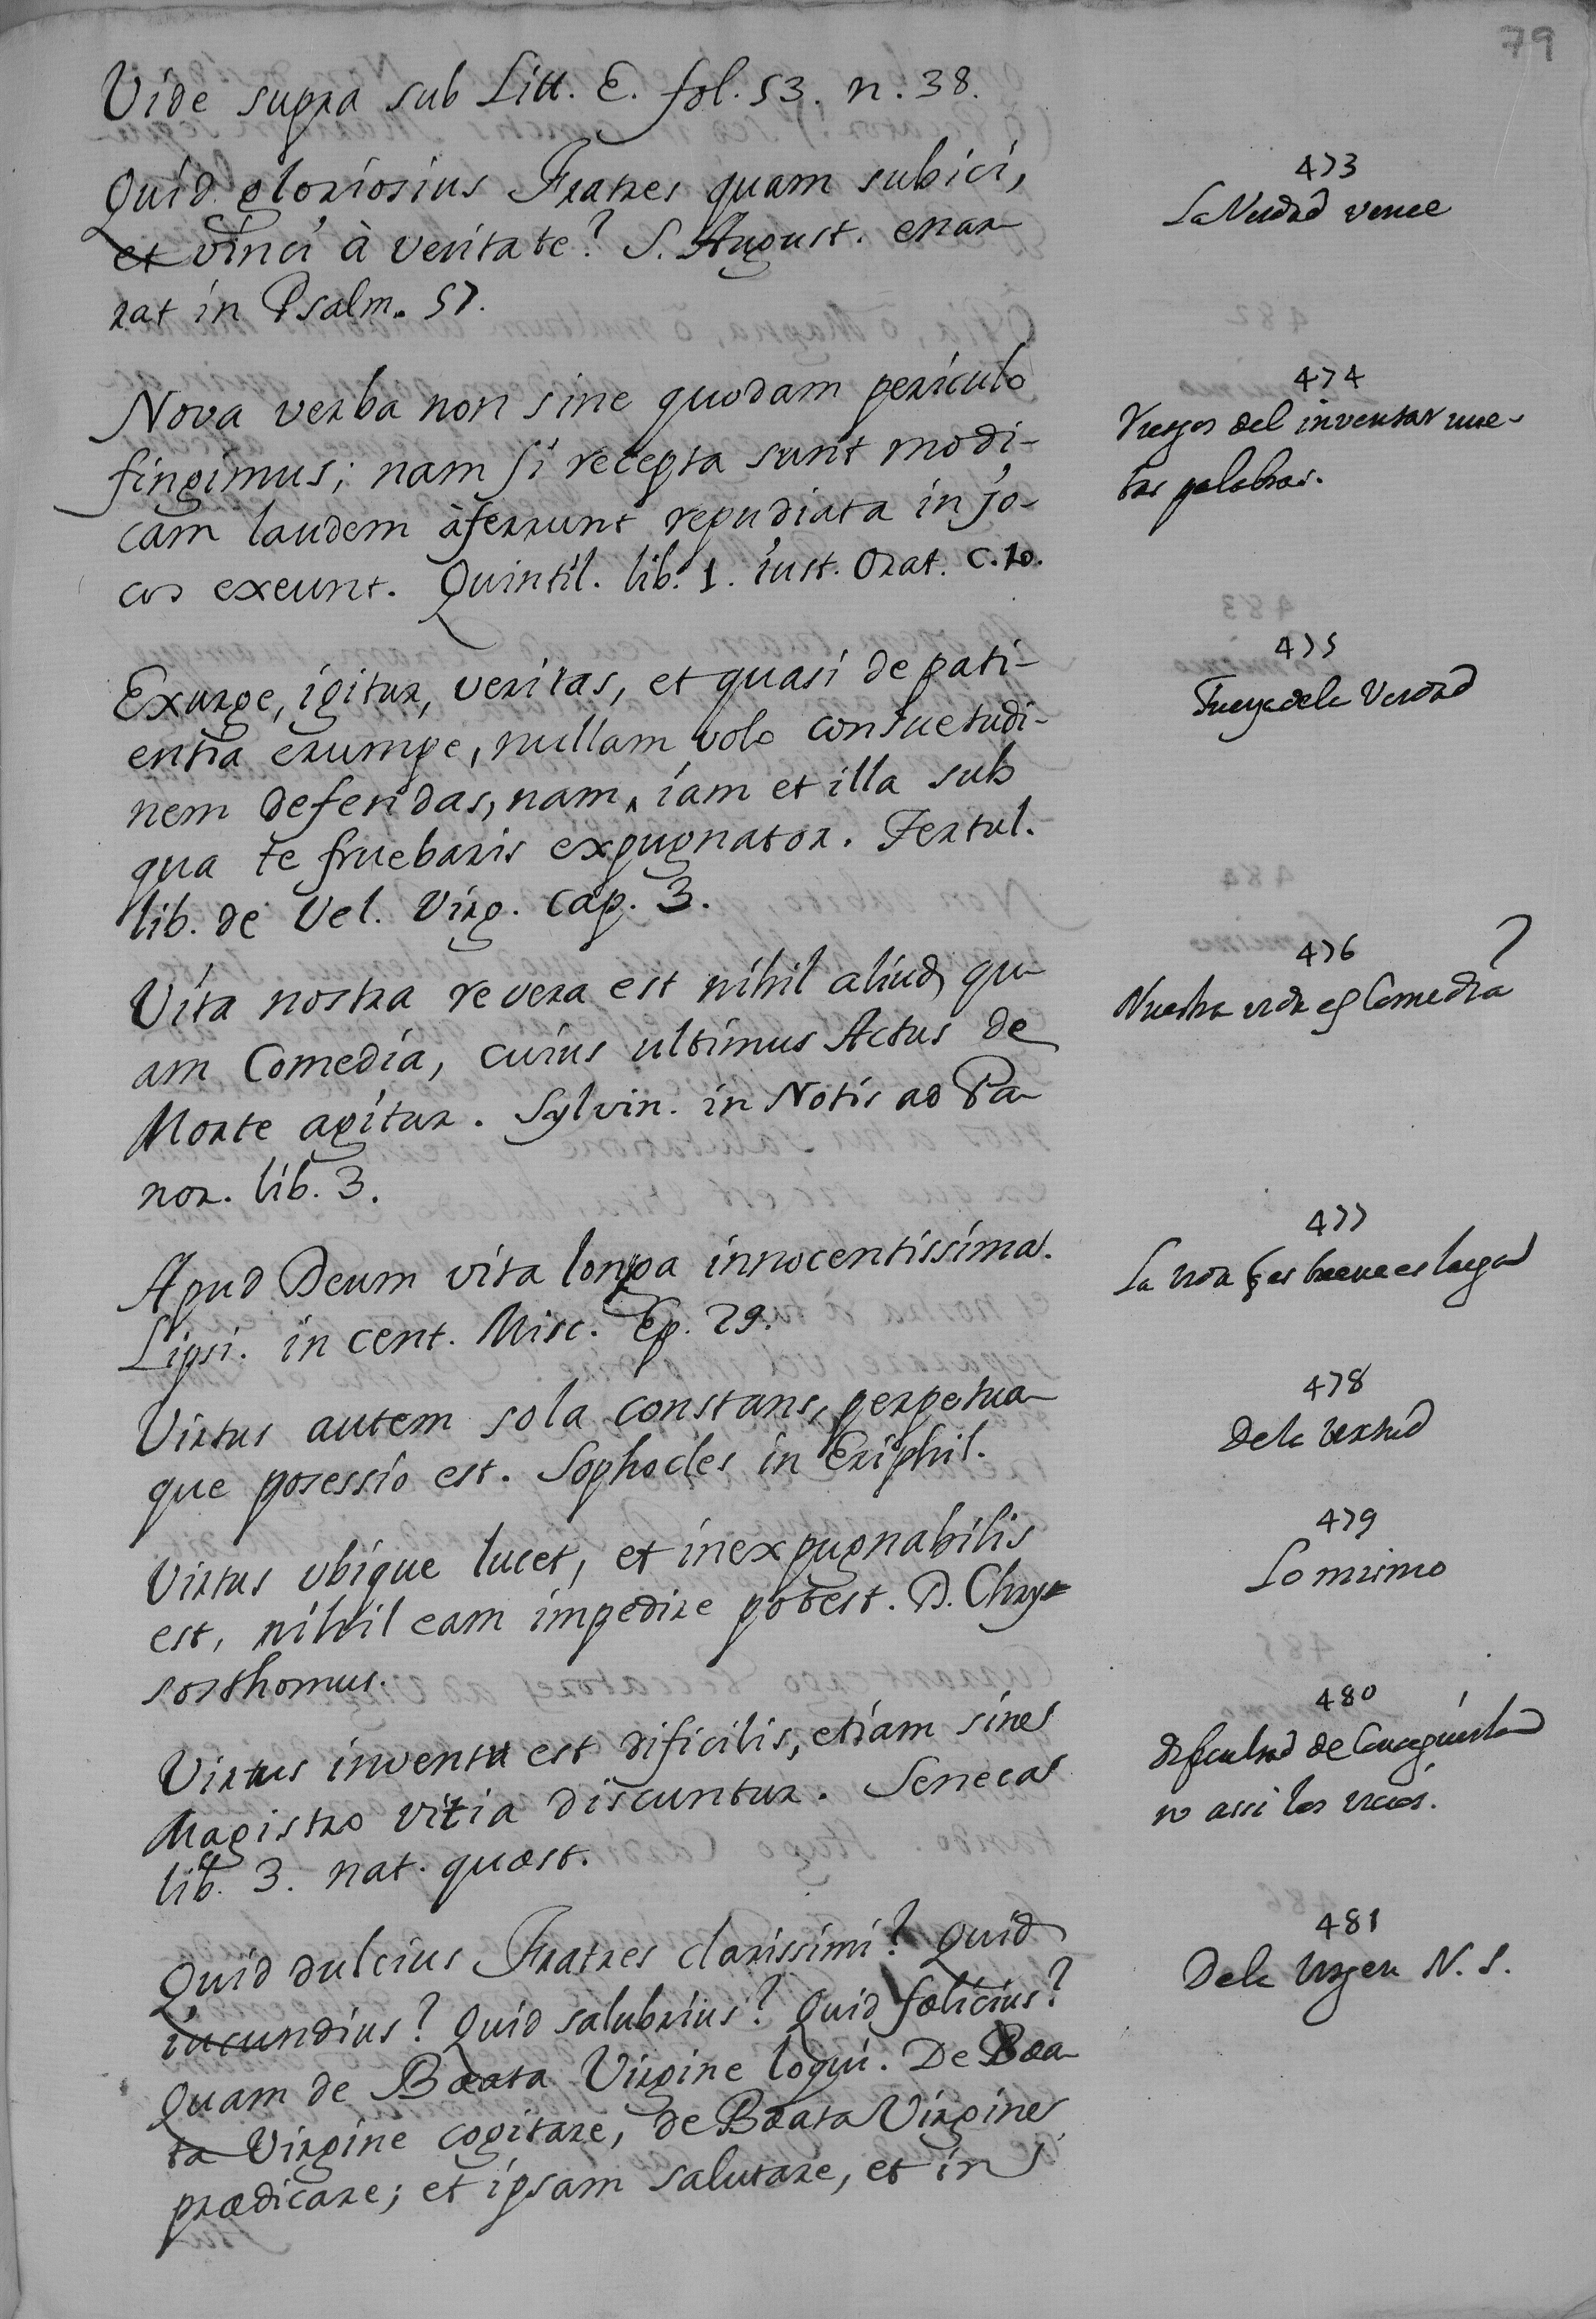 79
Vide supra sub Litt. E. fol. 53. n. 38.
473
La Verdad vence
Quid gloriosius Fratres quam subici,
et vinci à veritate? S. August. enar
rat in Psalm. 57.
474
Riesgos del inventar nue-
bas palabras.
Nova verba non sine quodam periculo
fingimus; nam si recepta sunt modi-
cam laudem àferrunt repudiata in jo-
cos exeunt. Quintil. lib. 1. iust. Orat. C. 10.
475
Fuerza dela Verdad
Exurge, igitur, veritas, et quasi de pati-
entia erumpe, nullam volo consuetudi-
nem defendas, nam, iam et illa sub
qua te fruebaris expugnator. Tertul.
lib. de Vel. Virg. Cap. 3.
476
Nuestra vida es Comedia
Vita nostra revera est nihil aliud qu
am Comedia, cuius ultimus Actus de
Morte agitur. Sylvin. in Notis ad Pa
nor. lib. 3.
477
La vida q es buena es larga
Apud Deum vita longa innocentissima.
Lipsi. in cent. Misc. Ep. 29.
478
Dela Vertud
Virtus autem sola constans, perpetua
que posessio est. Sophocles in Eriphil.
479
Lo mismo
Virtus ubique lucet, et inexpugnabilis
est, nihil eam impedire potest. D. Chry=
sosthomus.
480
Dificultad de Conseguirla
no assi los vicios.
Virtus inventu est dificilis, etiam sine
Magistro vitia discuntur. Seneca
lib. 3. nat. quæst.
481
Dela Virgen N. S.
Quid dulcius Fratres clarissimi? Quid
iucundius? Quid salubrius? Quid fælicius?
Quam de Bæata Virgine loqui. De Bæa
ta Virgine cogitare, de Bæata Virgine
prædicare; et ipsam salutare, et in